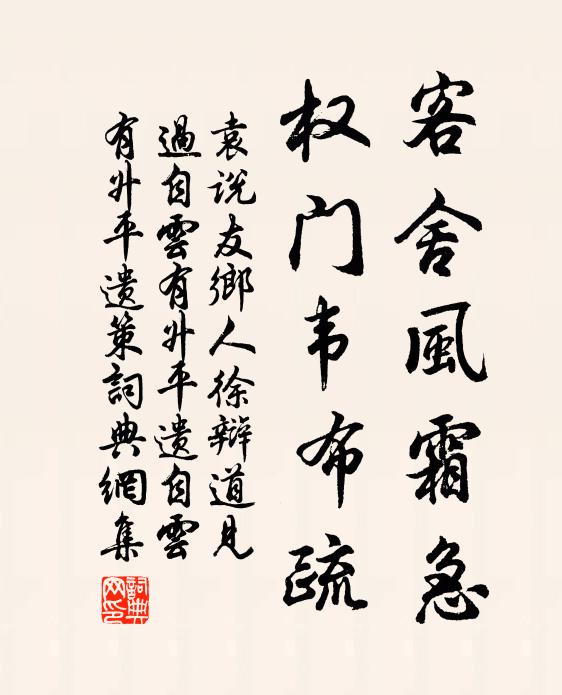 客舍風霜急
权门韦布疏
袁说友鄉人徐辯道見
過自雲有升平遗自雲
有升平遗策詞典網集
詞典网印